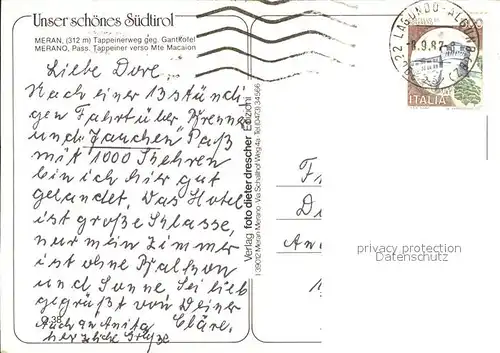 Unser schönes Südtirol
MERAN, (312 m) Tappeinerweg geg. Gantkofel
MERANO, Pass. Tappeiner verso Mte Macaion
Liebe Dore
Nach einer 13 stündi
gen Fahrt über Brenner
und Jauchen Paß
mit 1000 Kehren
bin ich hier gut
gelandet. Das Hotel
ist große Klasse,
nur mein Zimmer
ist ohne Balkon
und Sonne Sei lieb
gegrüßt von Deiner
Auch an Anita Cläre.
herzliche Grüße
38
Verlag foto dieter drescher Edizioni
I-39012 Meran Merano · Via Schallhof Weg 4a · Tel (0473) 34566
LAGUNDO - ALGUND
-8.9.82
ITALIA
F
D
An
privacy protection
Datenschutz